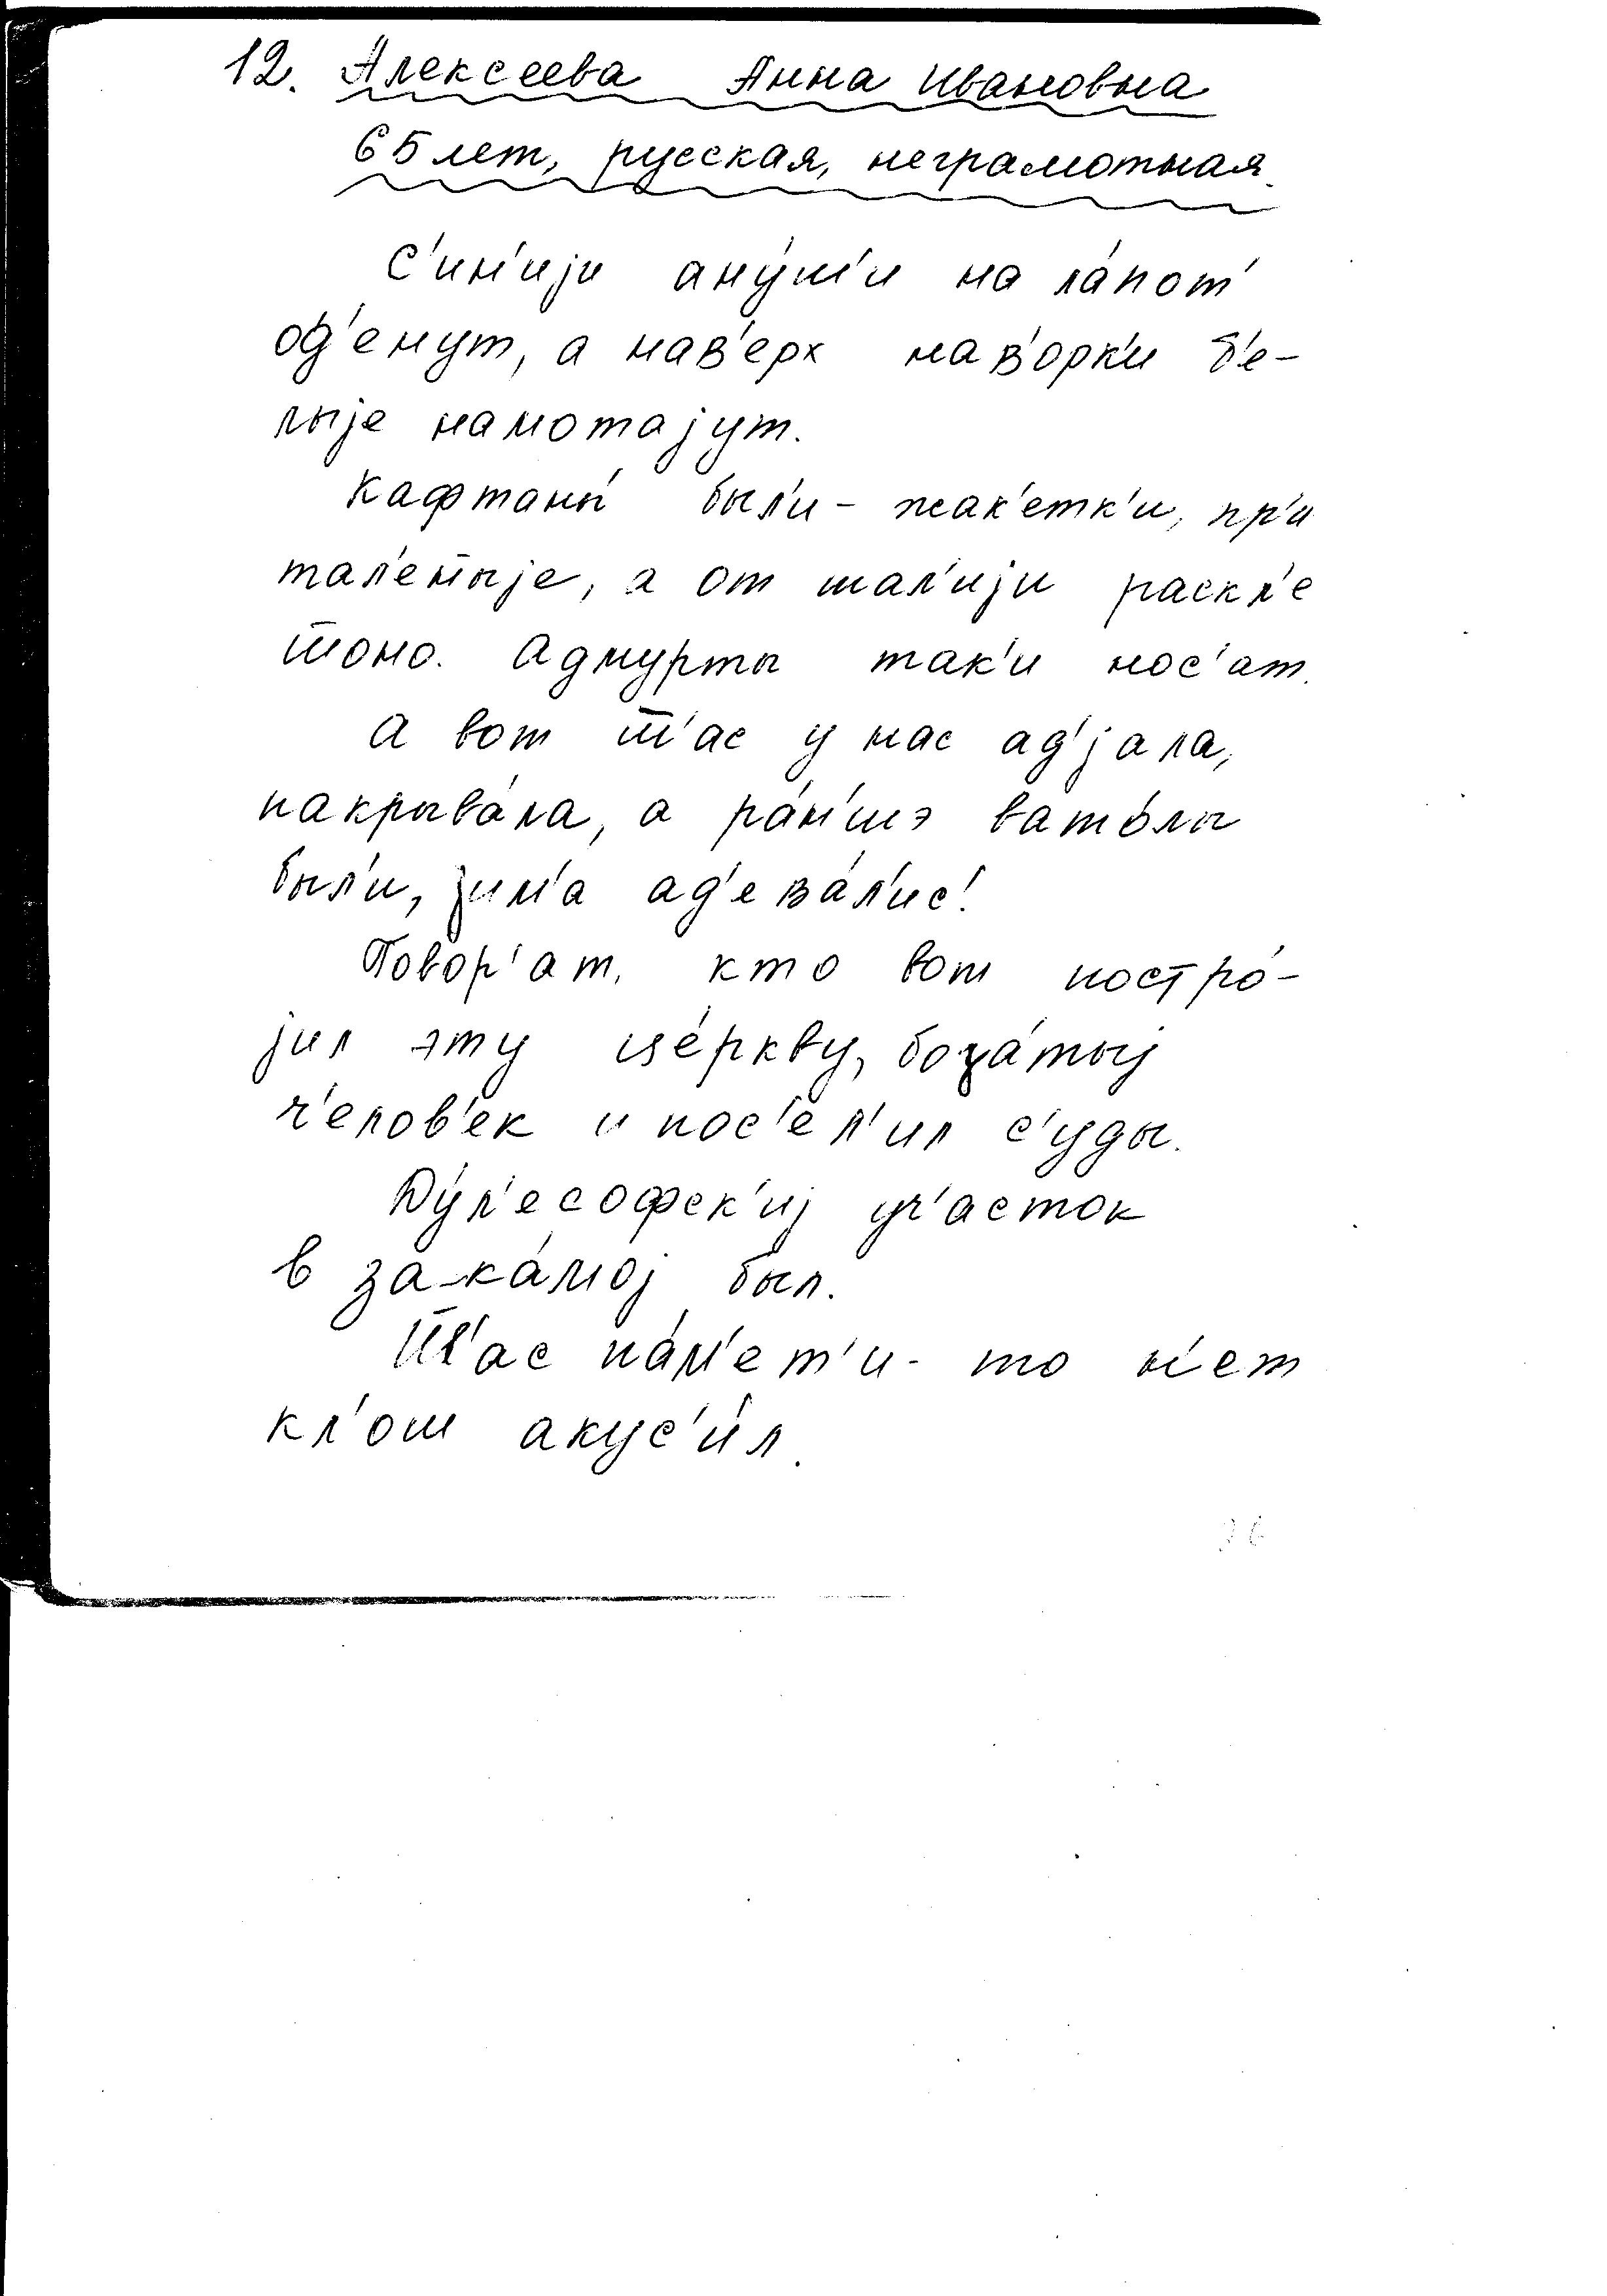 12. Алексеева Анна Ивановна
65 лет, русская, неграмотная.
с'ин'иjи ану́ш'и на ла́пот'
од'енут, а нав'ерх нав'орк'и б'е-
лыjе намотаjут.
Кафтаны́ был'и - жак'етк'и, пр'и
тал'еныjе, а от тал'иjи раскл'е
шоно. Адмурты так'и нос'ат.
А вот ш̅'ас у нас ад'jала,
накрыва́ла, а ра́н'шэ вато́лы
был'и, им'а ад'ева́л'ис'.
Говор'ат, кто вот постро́-
jил эту це́ркву, бога́тыj
ч'елов'ек и пос'ел'ил с'уды.
Ду́л'есофск'иj уч'асток
в за-ка́моj был.
Ш̅'ас па́м'ет'и-то н'ет
кл'ош акус'и́л.
36